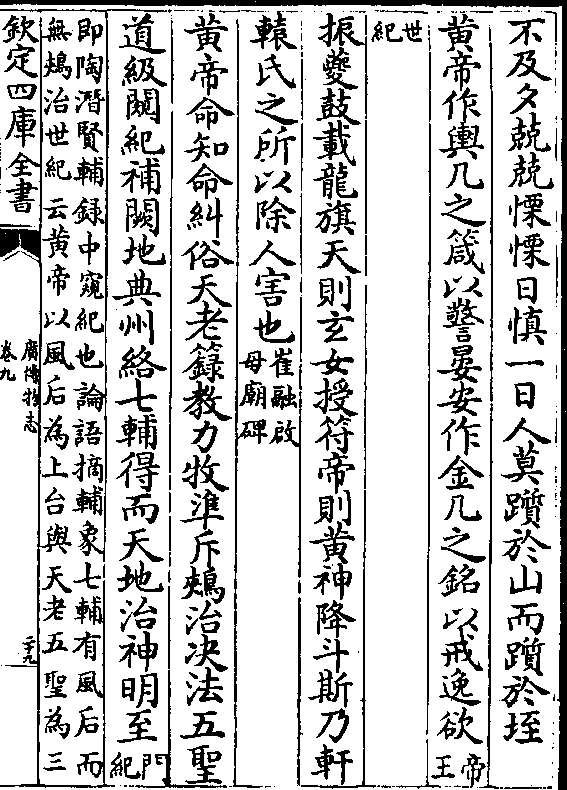 不及夕兢兢慄慄日慎一日人莫躓於山而躓於垤
黄帝作輿几之箴以警晏安作金几之銘以戒逸欲帝王
世紀
振夔鼓載龍旗天則玄女授符帝則黄神降斗斯乃軒
轅氏之所以除人害也崔融啟母廟碑
黄帝命知命糾俗天老籙教力牧準斥鵊治决法五聖
道級闚紀補闕地典州絡七輔得而天地治神明至門紀
即陶潛賢輔録中窺紀也論語摘輔象七輔有風后而
無鵊治世紀云黄帝以風后為上台與天老五聖為三
欽定四庫全書
廣博物志
卷九
二十九